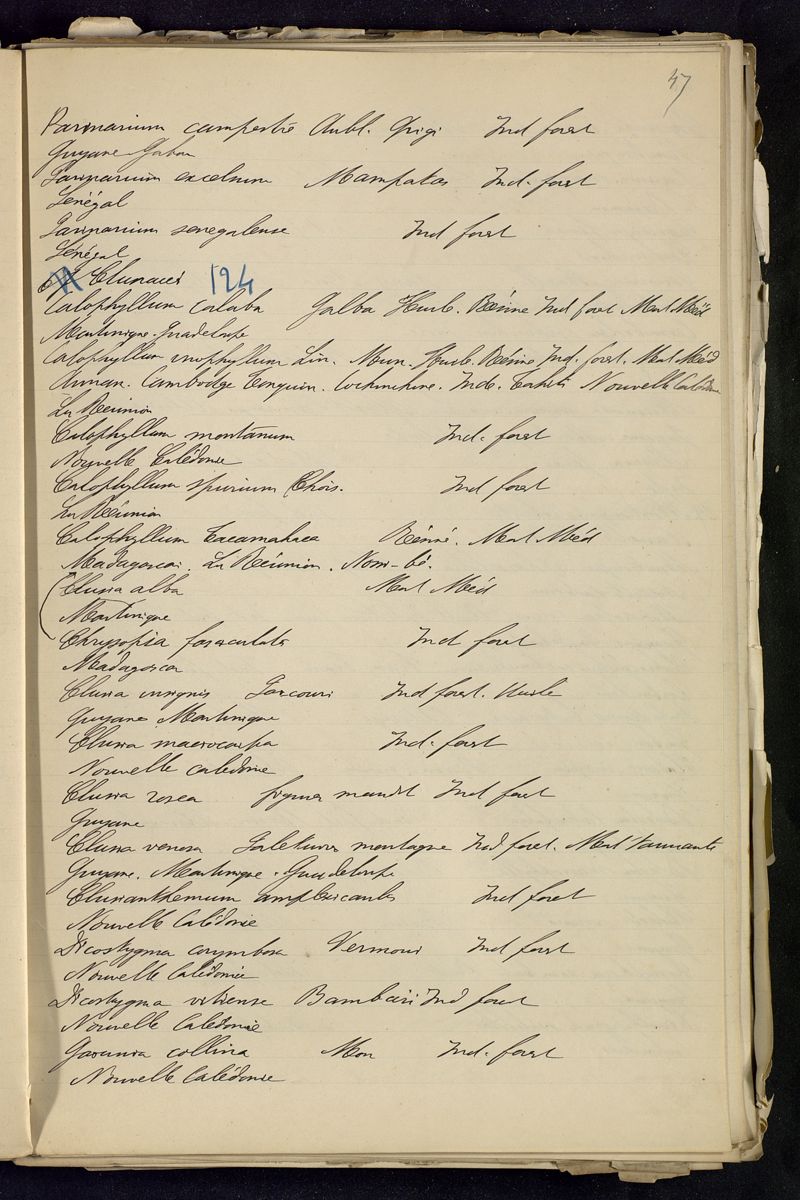 47
Parinarium campestre Aubl. Grigi Ind forest
Guyane Gabon
Parinarium excelsum Mampatas Ind. forest
Sénégal
Parinarium senegalense Ind forest
Sénégal
Clusiacees 124
Calophyllum calaba Galba Huile. Résine Ind forest Mat Méd
Martinique. Guadeloupe
Calophyllum inophyllum Lin. Mun. Huile. Résine Ind. forest. Mat Méd
Annam. Cambodge Tonquin. Cochinchine. Inde. Tahiti Nouvelle Calédonie
La Réunion
Calophyllum montanum Ind. forest
Nouvelle Calédonie
Calophyllum spurium Chois. Ind forest
La Réunion
Calophyllum Tacamahaca Résine. Mat Méd
Madagascar. La Réunion. Nossi-bé.
Clusia alba Mat Méd
Martinique
Chrysopia fasciculata Ind forest
Madagascar
Clusia insignis Parcouri Ind forest. Huile
Guyane. Martinique
Clusia macrocarpa Ind. forest
Nouvelle calédonie
Clusia rosea figuier maudit Ind forest
Guyane
Clusia venosa Paletuvier montagne Ind forest. Mat tannante
Guyane. Martinique. Guadeloupe
Clusianthemum amplexicaule Ind forest
Nouvelle Calédonie
Discostygma corymbosa Vermoui Ind forest
Nouvelle Calédonie
Discostygma vitiense Bambari Ind forest
Nouvelle Calédonie
Garcinia collina Mou Ind. forest
Nouvelle Calédonie